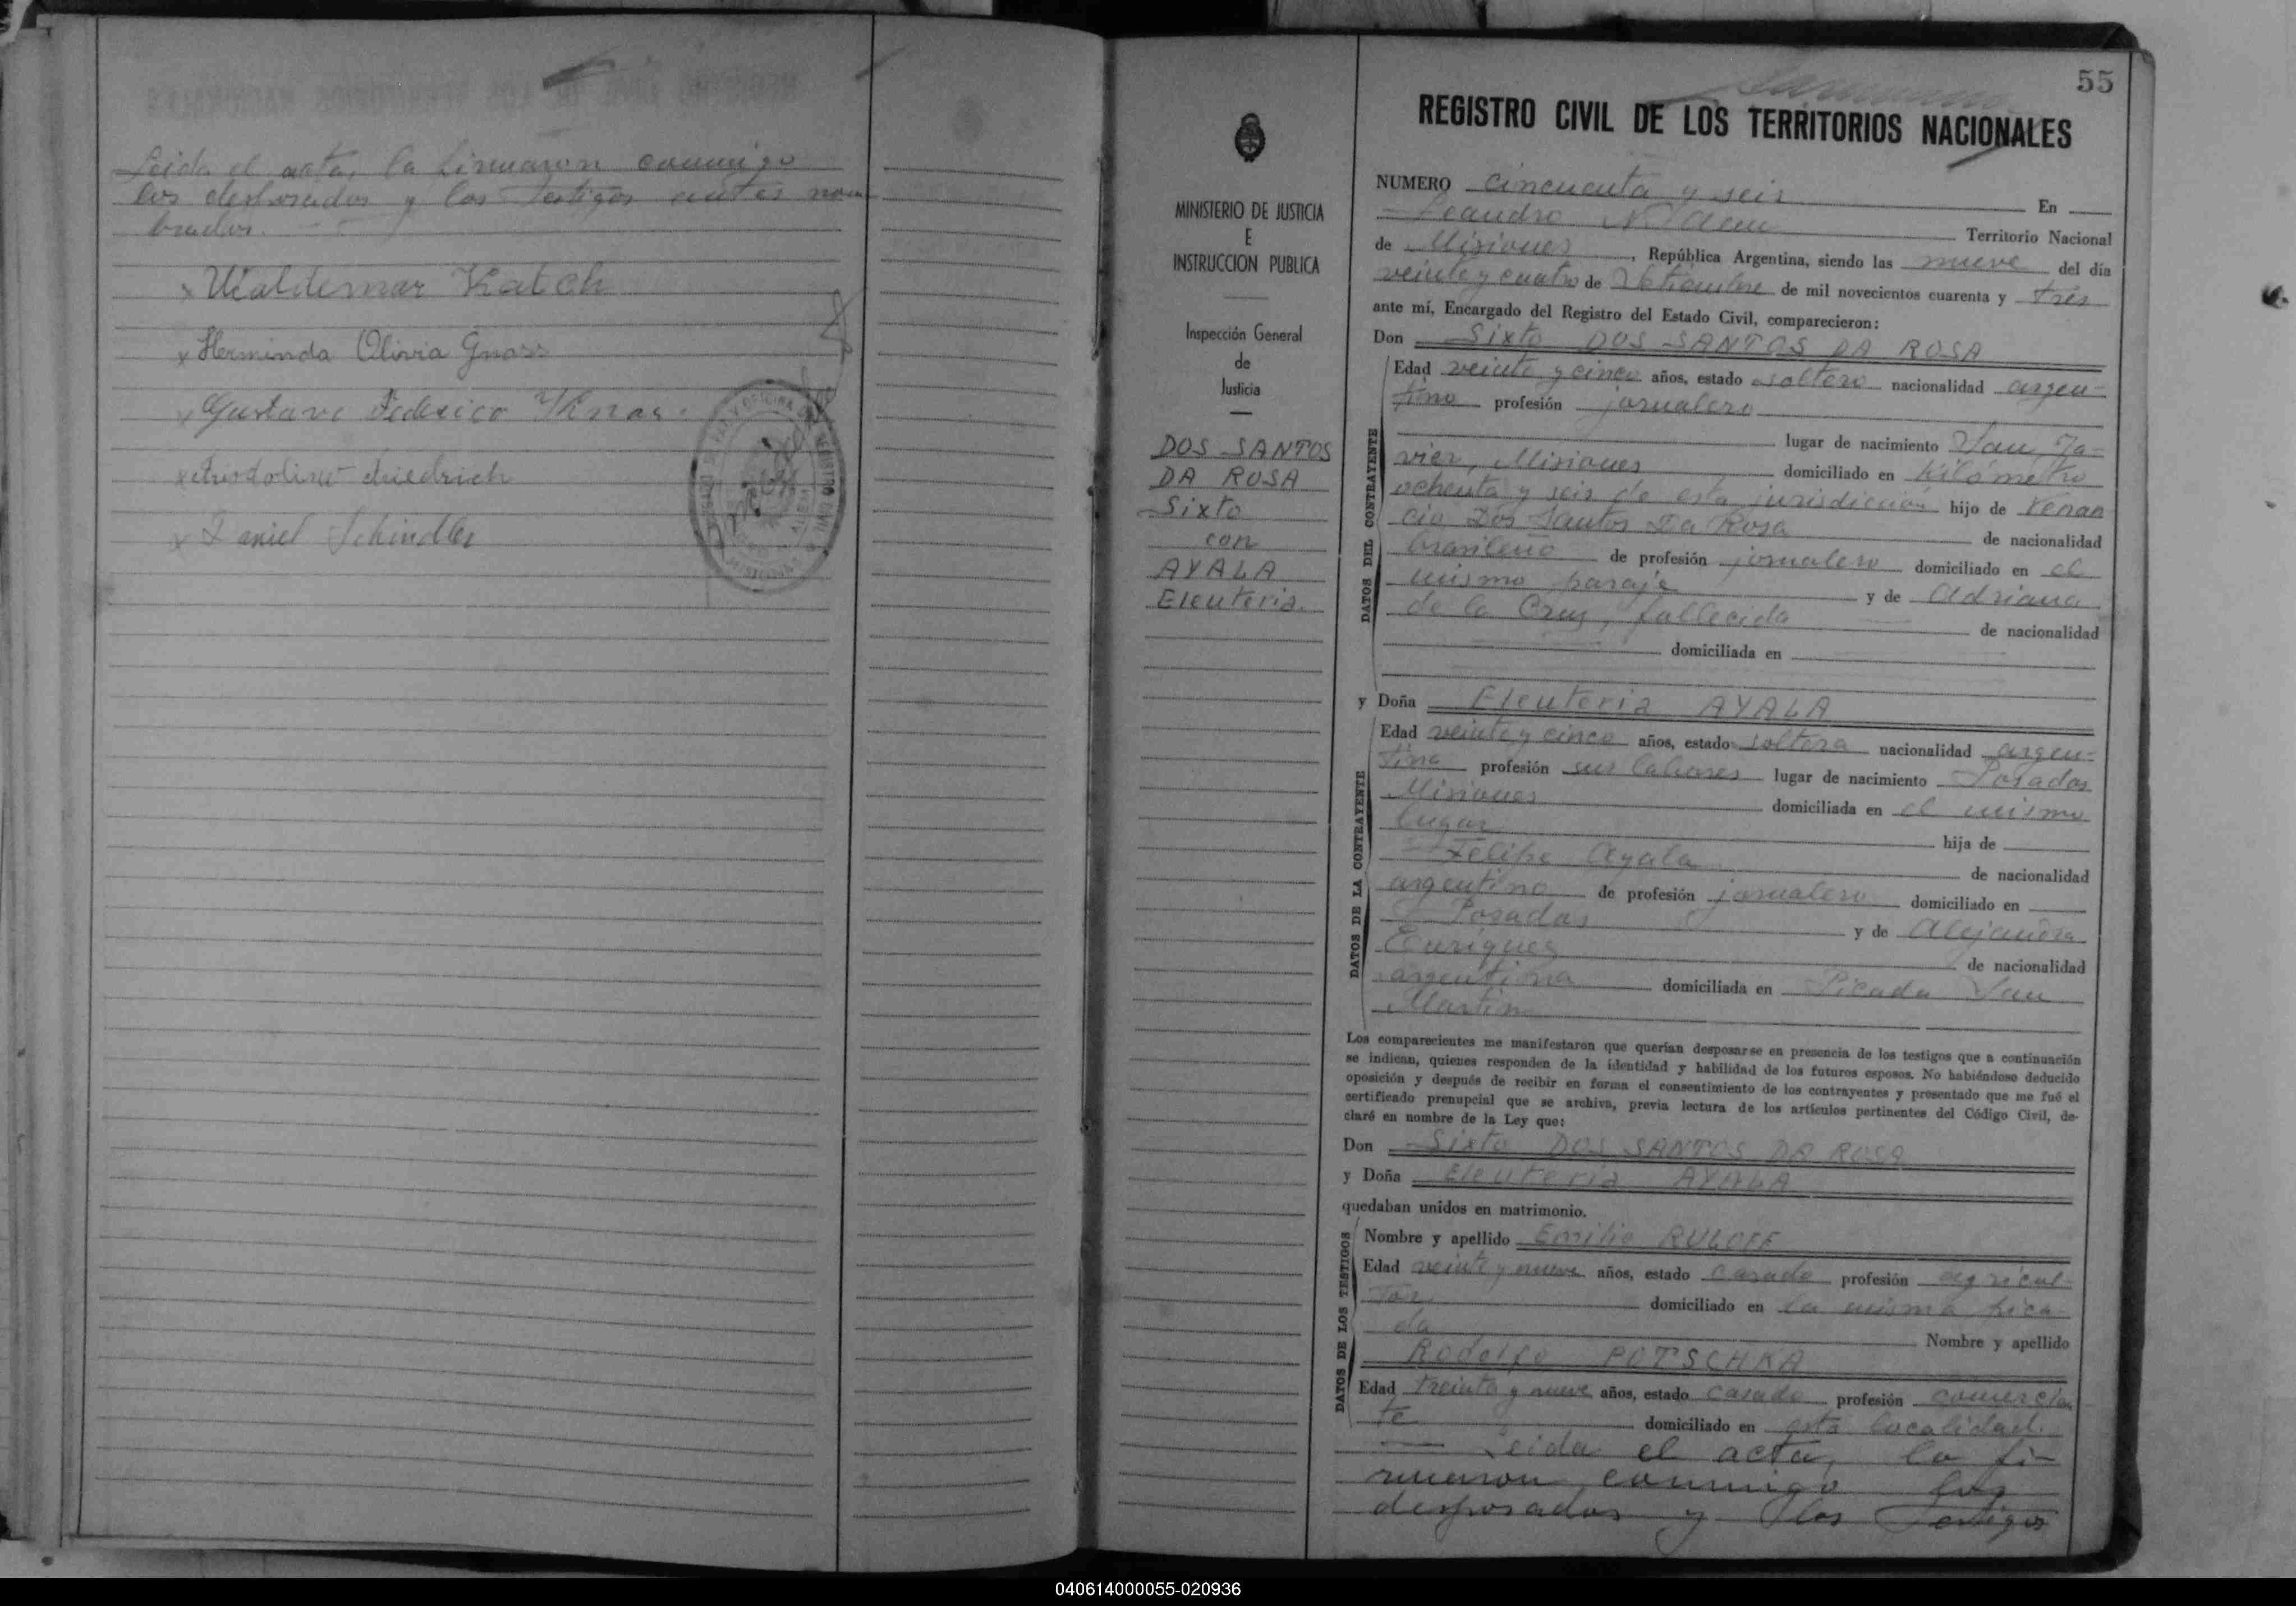 Leida el acta, la firmaron conmigo
los desposados y los testigos antes nom
brados.
x Waldemar Katch
x Herminda Olivia Gnass
x Gustavo Federico
x Friedrich
x Daniel Schindler
MINISTERIO DE JUSTICIA
E
INSTRUCCION PUBLICA
Inspección General
de
Justicia
DOS SANTOS
DA ROSA
Sixto
con
AYALA
Eleuteria.
55
REGISTRO CIVIL DE LOS TERRITORIOS NACIONALES
NUMERO cincuenta y seis En
Leandro N Alem Territorio Nacional
de Misiones, República Argentina, siendo las nueve del día
veinte y cuatro de Setiembre de mil novecientos cuarenta y tres
ante mí, Encargado del Registro del Estado Civil, comparecieron:
Don Sixto DOS SANTOS DA ROSA
DATOS DEL CONTRAYENTE
Edad veinte y cinco años, estado soltero nacionalidad argen-
tino profesión jornalero
lugar de nacimiento San Ja-
vier, Misiones domiciliado en Kilómetro
ochenta y seis de esta jurisdicción hijo de Venan
cio Dos Santos Da Rosa de nacionalidad
brasileño de profesión jornalero domiciliado en el
mismo paraje y de Adriana
de la Cruz, fallecida de nacionalidad
domiciliada en
y Doña Eleuteria AYALA
DATOS DE LA CONTRAYENTE
Edad veinte y cinco años, estado soltera nacionalidad argen-
tina profesión sus labores lugar de nacimiento Posadas
Misiones domiciliada en el mismo
lugar hija de
Felipe Ayala de nacionalidad
argentino de profesión jornalero domiciliado en
Posadas y de Alejandra
Enriques de nacionalidad
argentina domiciliada en Picada San
Martin
Los comparecientes me manifestaron que querían desposarse en presencia de los testigos que a continuación
se indican, quienes responden de la identidad y habilidad de los futuros esposos. No habiéndose deducido
oposición y después de recibir en forma el consentimiento de los contrayentes y presentado que me fué el
certificado prenupcial que se archiva, previa lectura de los artículos pertinentes del Código Civil, de-
claré en nombre de la Ley que:
Don Sixto DOS SANTOS DA ROSA
y Doña Eleuteria AYALA
quedaban unidos en matrimonio.
DATOS DE LOS TESTIGOS
Nombre y apellido Emilio RULOFF
Edad veinte y nueve años, estado casado profesión agricul-
tor domiciliado en la misma pica-
da Nombre y apellido
Rodolfo POTSCHKA
Edad treinta y nueve años, estado casado profesión comercian
te domiciliado en esta localidad.
Leida el acta, la fi-
rmaron conmigo los
desposados y los testigos
040614000055-020936